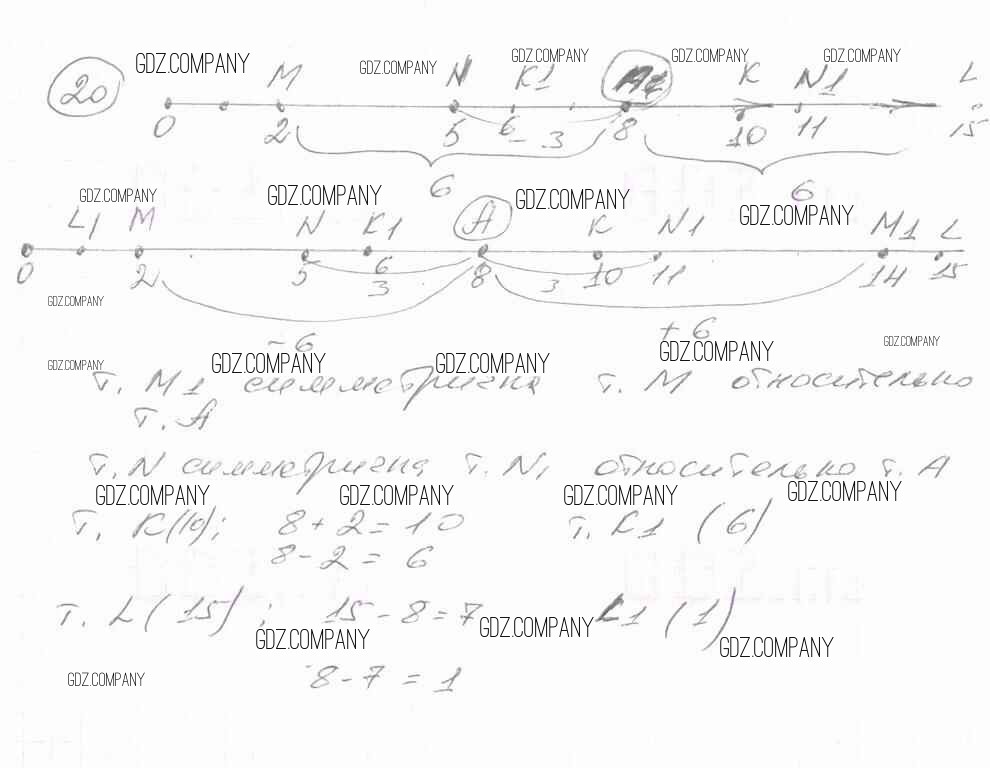 20
GDZ.COMPANY GDZ.COMPANY GDZ.COMPANY GDZ.COMPANY GDZ.COMPANY
M N K1 K N1 L
0 2 5 6 8 10 11 15
- 3
6 6
GDZ.COMPANY GDZ.COMPANY GDZ.COMPANY GDZ.COMPANY
L1 M N K1 A K N1 M1 L
0 2 5 6 8 10 11 14 15
3 3
GDZ.COMPANY
-6 +6
GDZ.COMPANY GDZ.COMPANY GDZ.COMPANY GDZ.COMPANY GDZ.COMPANY
т. M1 симметрична т. M относительно
т. A
т. N симметрична т. N1 относительно т. A
GDZ.COMPANY GDZ.COMPANY GDZ.COMPANY GDZ.COMPANY
т. K(10); 8+2=10 т. K1 (6)
8-2=6
т. L(15); 15-8=7 L1 (1)
GDZ.COMPANY GDZ.COMPANY GDZ.COMPANY
8-7=1
GDZ.COMPANY